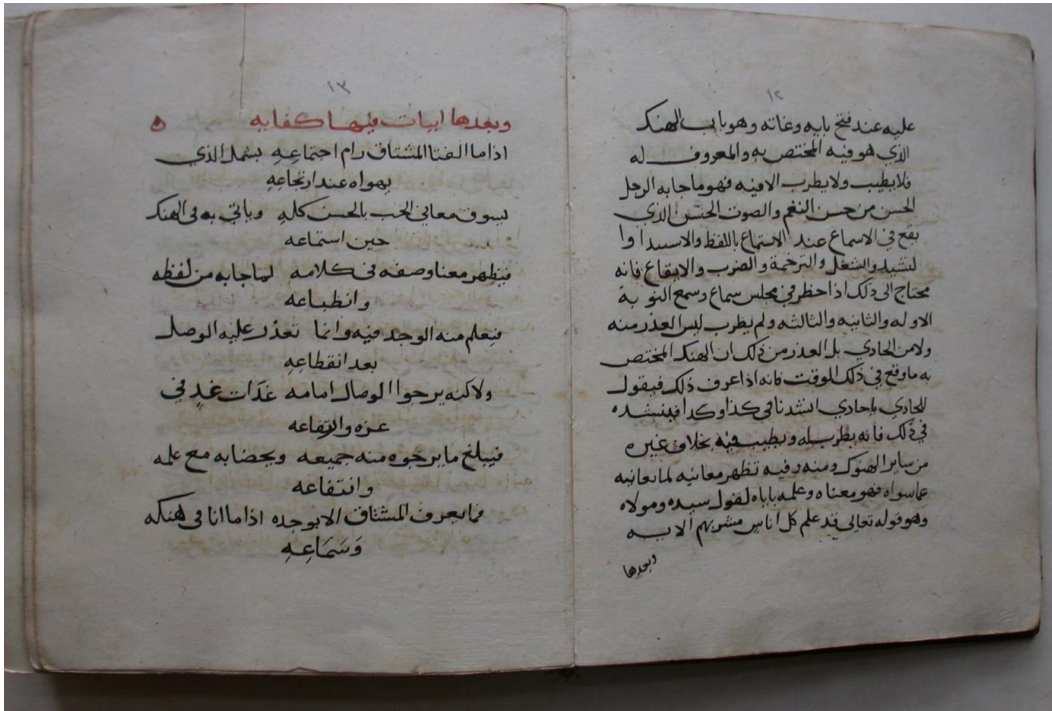 ١٢
عليه عند فتح بابه وغاته وهو باب الهنك
الذي هو فيه المختص به والمعروف له
فلا يطيب ولا يطرب الا فيه فهو ما جا به الرجل
الحسن من حسن النغم والصوت الحسن الذي
يقع في الاسماع عند الاستماع باللفظ والاسبدا وا
لنشيد والشغل والترجمة والضرب والايقاع فانه
محتاج الى ذلك اذا حظر في مجلس سماع وسمع النوبة
الاوله والثانيه والثالثه ولم يطرب ليس العذر منه
ولا من الحادي بل العذر من ذلك ان الهنك المختص
به ما وقع في ذلك الوقت فانه اذا عرف ذلك فيقول
للحادي يا حادي انشدنا في كذا وكذا فينشده
في ذلك فانه يطرب له ويطيب فيه بخلاف غيره
من ساير الهنوك ومنه وفيه تظهر معانيه لمانعانيه
عما سواه فهو معناه وعلمه باباه لقول سيده ومولاه
وهو قوله تعالى قد علم كل اناس مشربهم الايه
وبعدها
١٣
وبعدها ابيات فيها كفايه ه
اذا ما الفتا المشتاق رام اجتماعه بشمل الذي
يهواه عند ارتجاعه
يسوق معاني الحب بالحسن كله وياتي به في الهنك
حين استماعه
فيظهر معنا وصفه في كلامه لما جا به من لفظه
وانطباعه
فيعلم منه الوجد فيه وانما تعذر عليه الوصل
بعد انقطاعه
ولاكنه يرجوا الوصال امامه غدات غد في
عزه وارتفاعه
فيبلغ ما يرجوه منه جميعه ويحضا به مع علمه
وانتفاعه
فما يعرف المشتاق الا بوجده اذا ما انا في هنكه
وسماعه